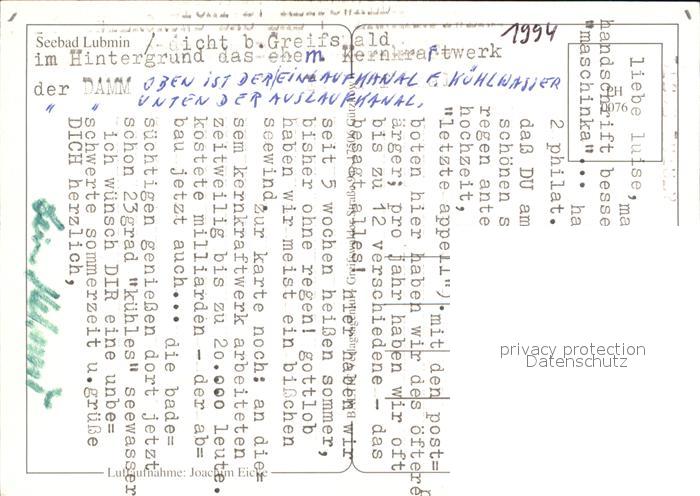 Seebad Lubmin /- dicht b.Greifswald 1994
im Hintergrund das ehem Kernkraftwerk
der DAMM OBEN IST DER EINLAUFKANAL F. KÜHLWASSER
" " UNTEN DER AUSLAUFKANAL.
liebe luise, ma
handschrift besse
"maschinka"... ha
2 philat.
daß DU am
schönen s
regen ante
hochzeit,
"letzte appell"). mit den post=
boten hier haben wir des öftere
ärger; pro jahr haben wir oft
bis zu 12 verschiedene - das
besagt alles! hier haben wir
seit 5 wochen heißen sommer,
bisher ohne regen! gottlob
haben wir meist ein bißchen
seewind.
zur karte noch: an die=
sem kernkraftwerk arbeiteten
zeitweilig bis zu 20.000 leute.
köstete milliarden - der ab=
bau jetzt auch... die bade=
süchtigen genießen dort jetzt
schon 23grad "kühles" seewasser
ich wünsch DIR eine unbe=
schwerte sommerzeit u.grüße
DICH herzlich,
dein
PH
076
Luftaufnahme: Joachim Eicke
privacy protection
Datenschutz